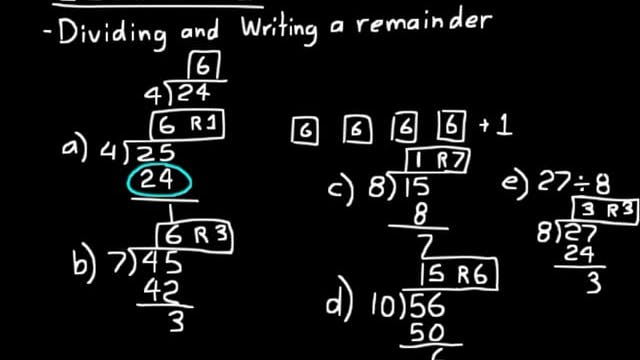 -Dividing and Writing a remainder
6
4)24
6 R1
a) 4)25
24
1
6 R3
b) 7)45
42
3
6 6 6 6 +1
1 R7
c) 8)15
8
7
15 R6
d) 10)56
50
e) 27÷8
3 R3
8)27
24
3